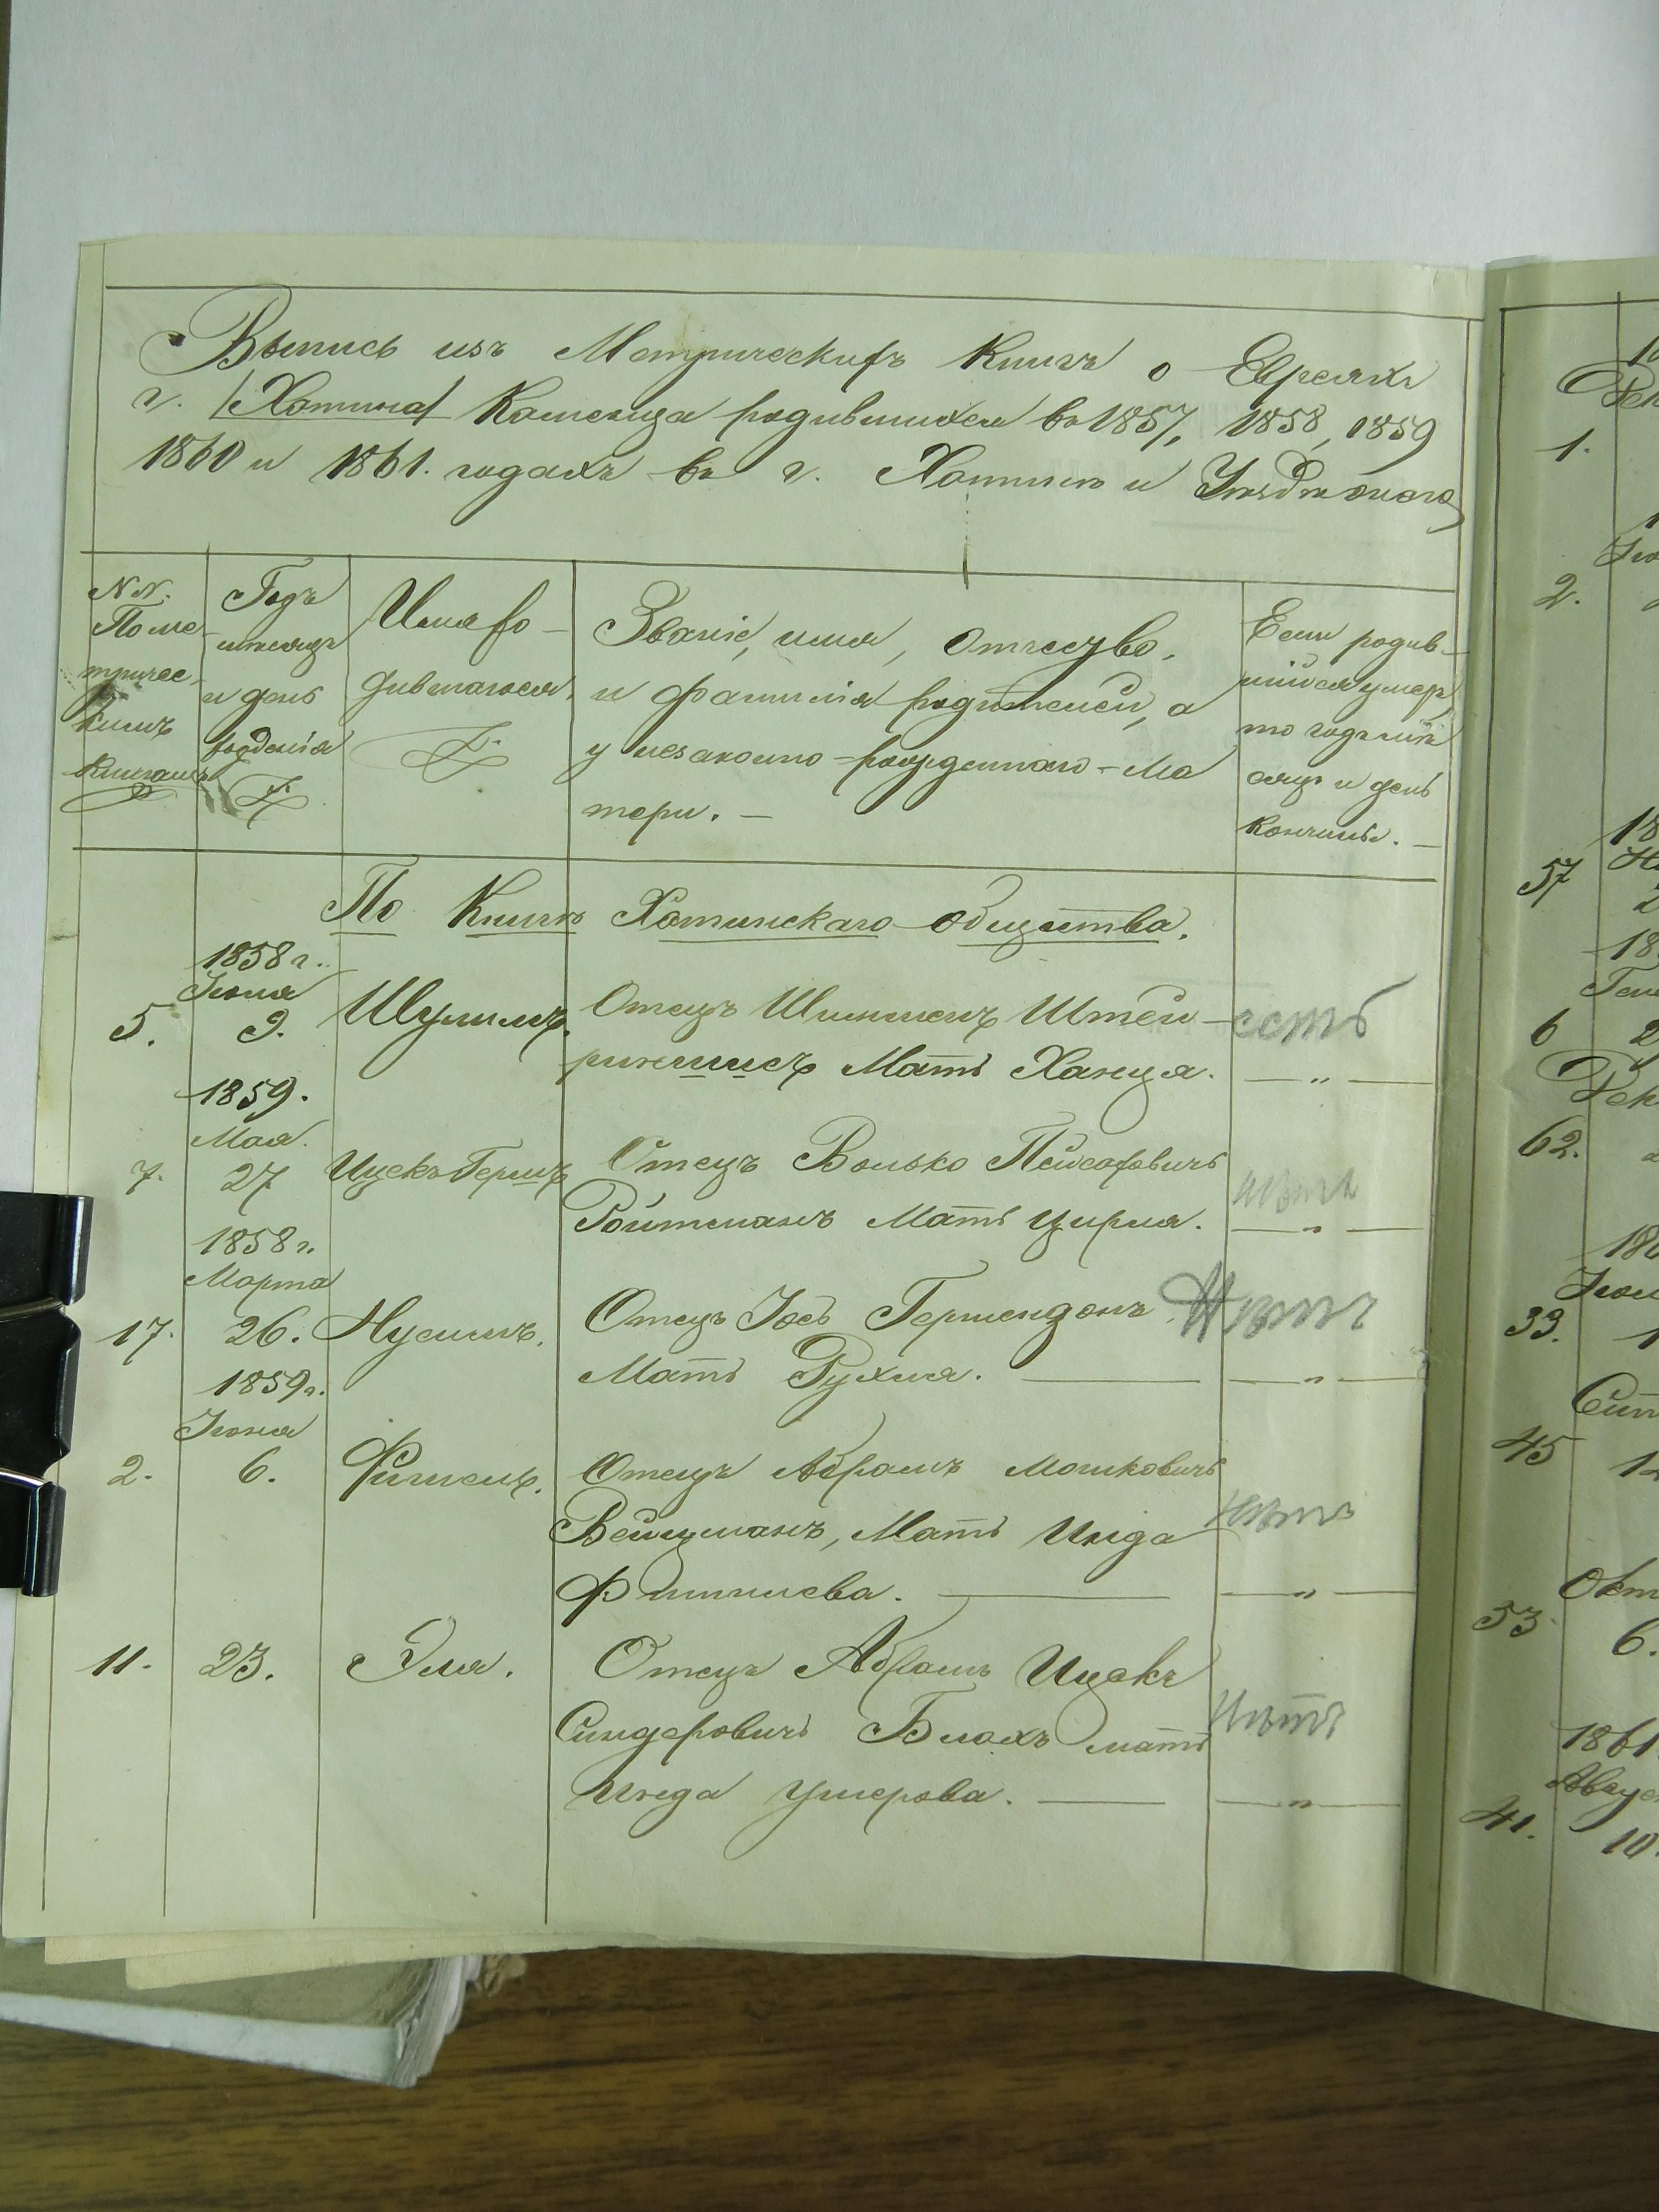 Выпись изъ Метрическихъ Книгъ о Евреяхъ
г. /Хотина/ Каменца родившихся въ 1857, 1858, 1859
1860 и 1861. годахъ въ г. Хотинѣ и
N.N.
По ме
тричес-
кимъ
книгамъ
Годъ
мѣсяцъ
и день
рожденія
Имя ро-
дившагося.
Званіе, имя, отчество,
и фамилія родителей, а
у незаконно-рожденнаго - Ма
тери. —
Если родив-
шійся умеръ,
то годъ мѣ
сяцъ и день
кончины. —
По Книгѣ Хотинскаго общества.
1858 г.
Іюня
5. 9. Шулимъ. Отецъ Шимшенъ Штей- есть
Мать Ханця. — " —
1859.
Мая.
7. 27 Ицекъ Гершъ Отецъ Волько Пейсаховичъ нѣтъ
Ройтманъ Мать Цирля. — " —
1858 г.
Марта
17. 26. Нусинъ. Отецъ Іось нѣтъ
Мать Рухля. — — " —
1859 г.
Іюня
2. 6. Фишель. Отецъ Абрамъ Мошковичъ
Вейцманъ, Мать Инда нѣтъ
— — " —
11. 23. Эля. Отецъ Абрамъ Ицекъ
Сендеровичъ Блохъ мать нѣтъ
Инда Ушерова. — — " —
1.
2.
57
6
62.
33.
45
Окт
53
6.
1861
41.
10.